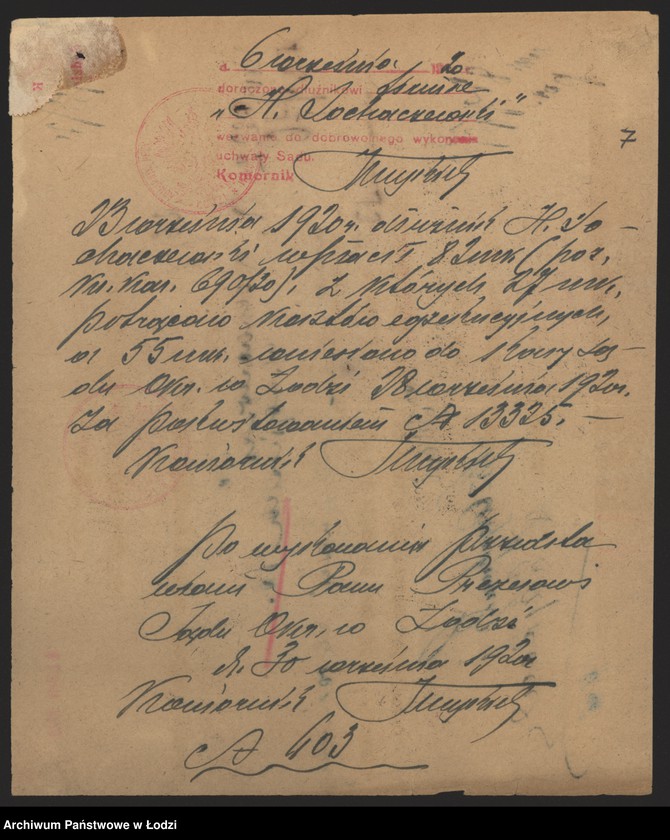 d. 6 września 1920 r.
doręczono dłużnikowi firmie
„H. Sochaczewski”
wezwanie do dobrowolnego wykonania
uchwały Sądu.
Komornik
7
23 września 1920 r. dłużnik H. So-
chaczewski wpłacił 82 mk (poz.
kw. 690/20), z których 27 mk.
potrącono kosztów egzekucyjnych,
a 55 mk. wniesiono do Kasy Są-
du Okr. w Łodzi 28 września 1920 r.
za pokwitowaniem A 13325. —
Komornik
Po wykonaniu przedsta
wiam Panu Prezesowi
Sądu Okr. w Łodzi
d. 30 września 1920 r.
Komornik
A 403
Archiwum Państwowe w Łodzi